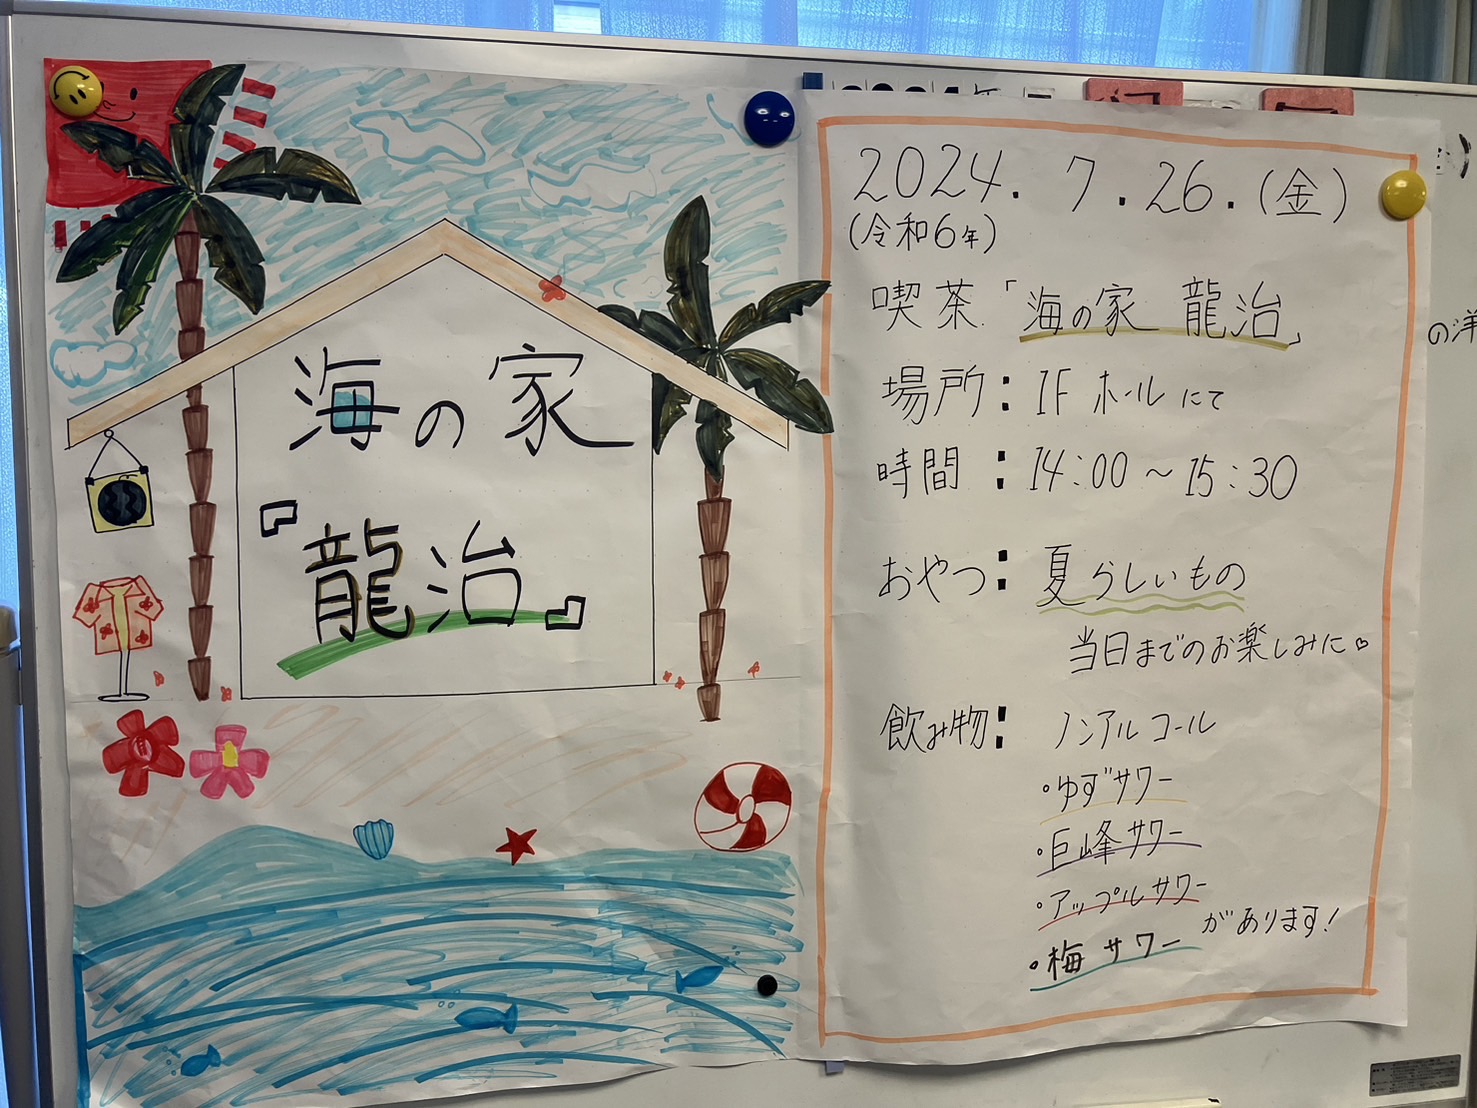 海の家
『龍治』
2024.7.26.(金)
(令和6年)
喫茶「海の家 龍治」
場所:1Fホールにて
時間:14:00~15:30
おやつ:夏らしいもの
当日までのお楽しみに♡
飲み物:ノンアルコール
・ゆずサワー
・巨峰サワー
・アップルサワー
・梅サワー があります!
の洋